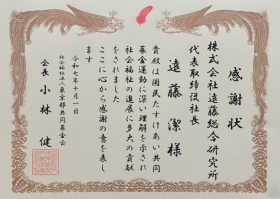 感謝状
株式会社遠藤総合研究所
代表取締役社長
遠藤潔様
貴殿は国民たすけあい共同
募金運動に深い理解を示され
社会福祉の進展に多大の貢献
をされました
ここに心から感謝の意を表し
ます
令和七年十月一日
社会福祉法人東京都共同募金会
会長 小林健